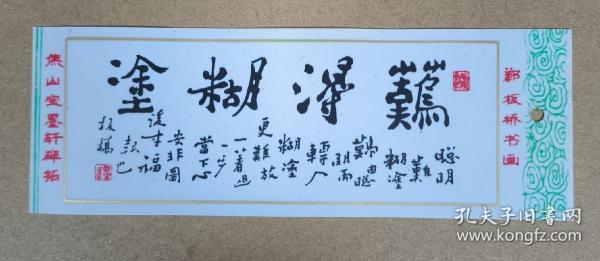 郑板桥书画
難得糊塗
聰明
難
糊塗
難由聰
明而
轉入
糊塗
更難放
一着退
一步
當下心
安非圖
後来福
報也
板橋
焦山宝墨轩碑拓
孔夫子旧书网
www.kongfz.com